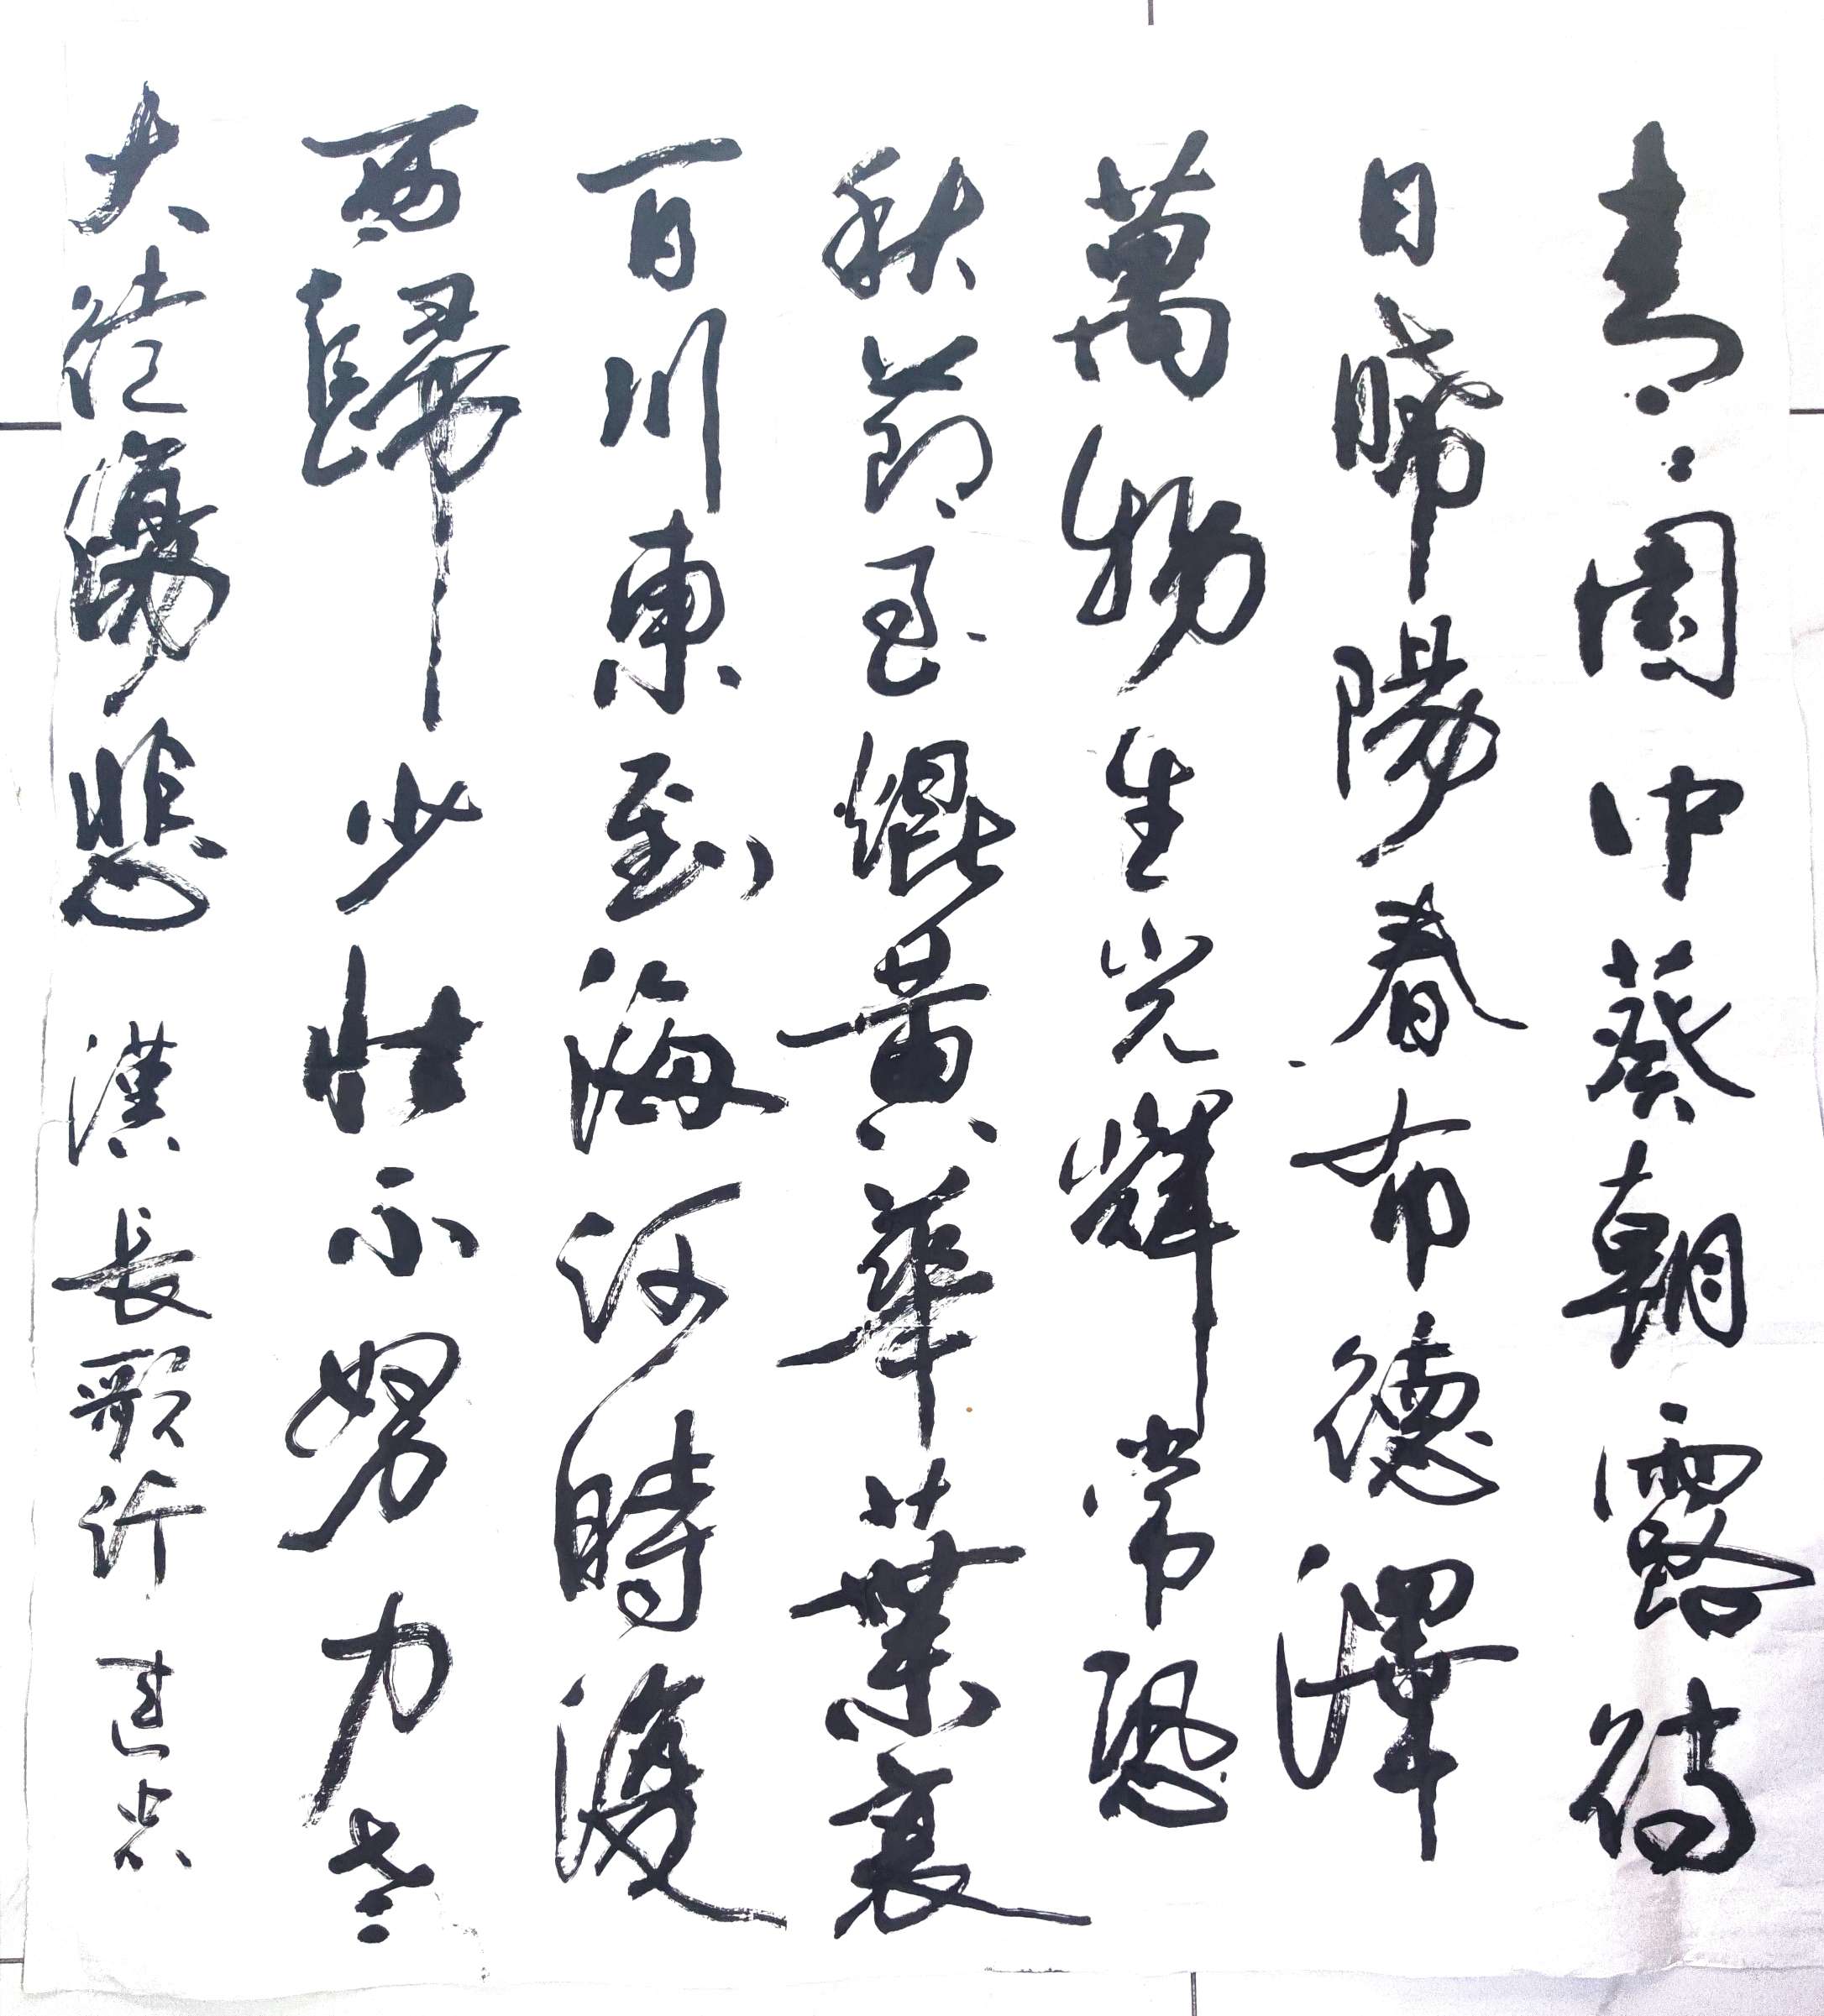 青〻園中葵朝露待
日晞陽春布德澤
萬物生光輝常恐
秋節至焜黃華葉衰
百川東到海何時復
西歸少壯不努力老〻
大徒傷悲 漢長歌行